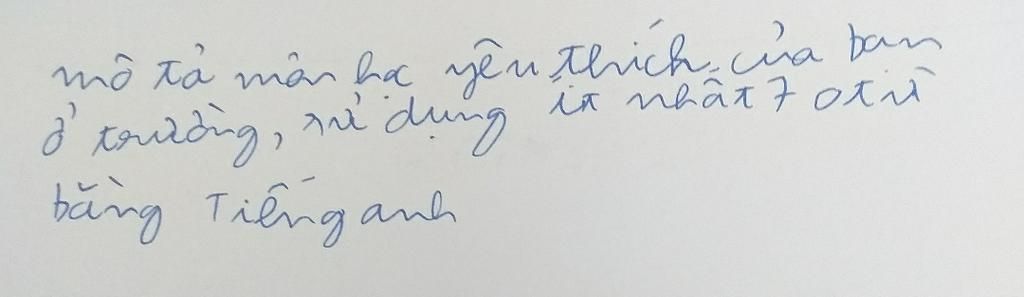 mô tả môn học yêu thích của bạn
ở trường, sử dụng ít nhất 70 từ
bằng Tiếng anh